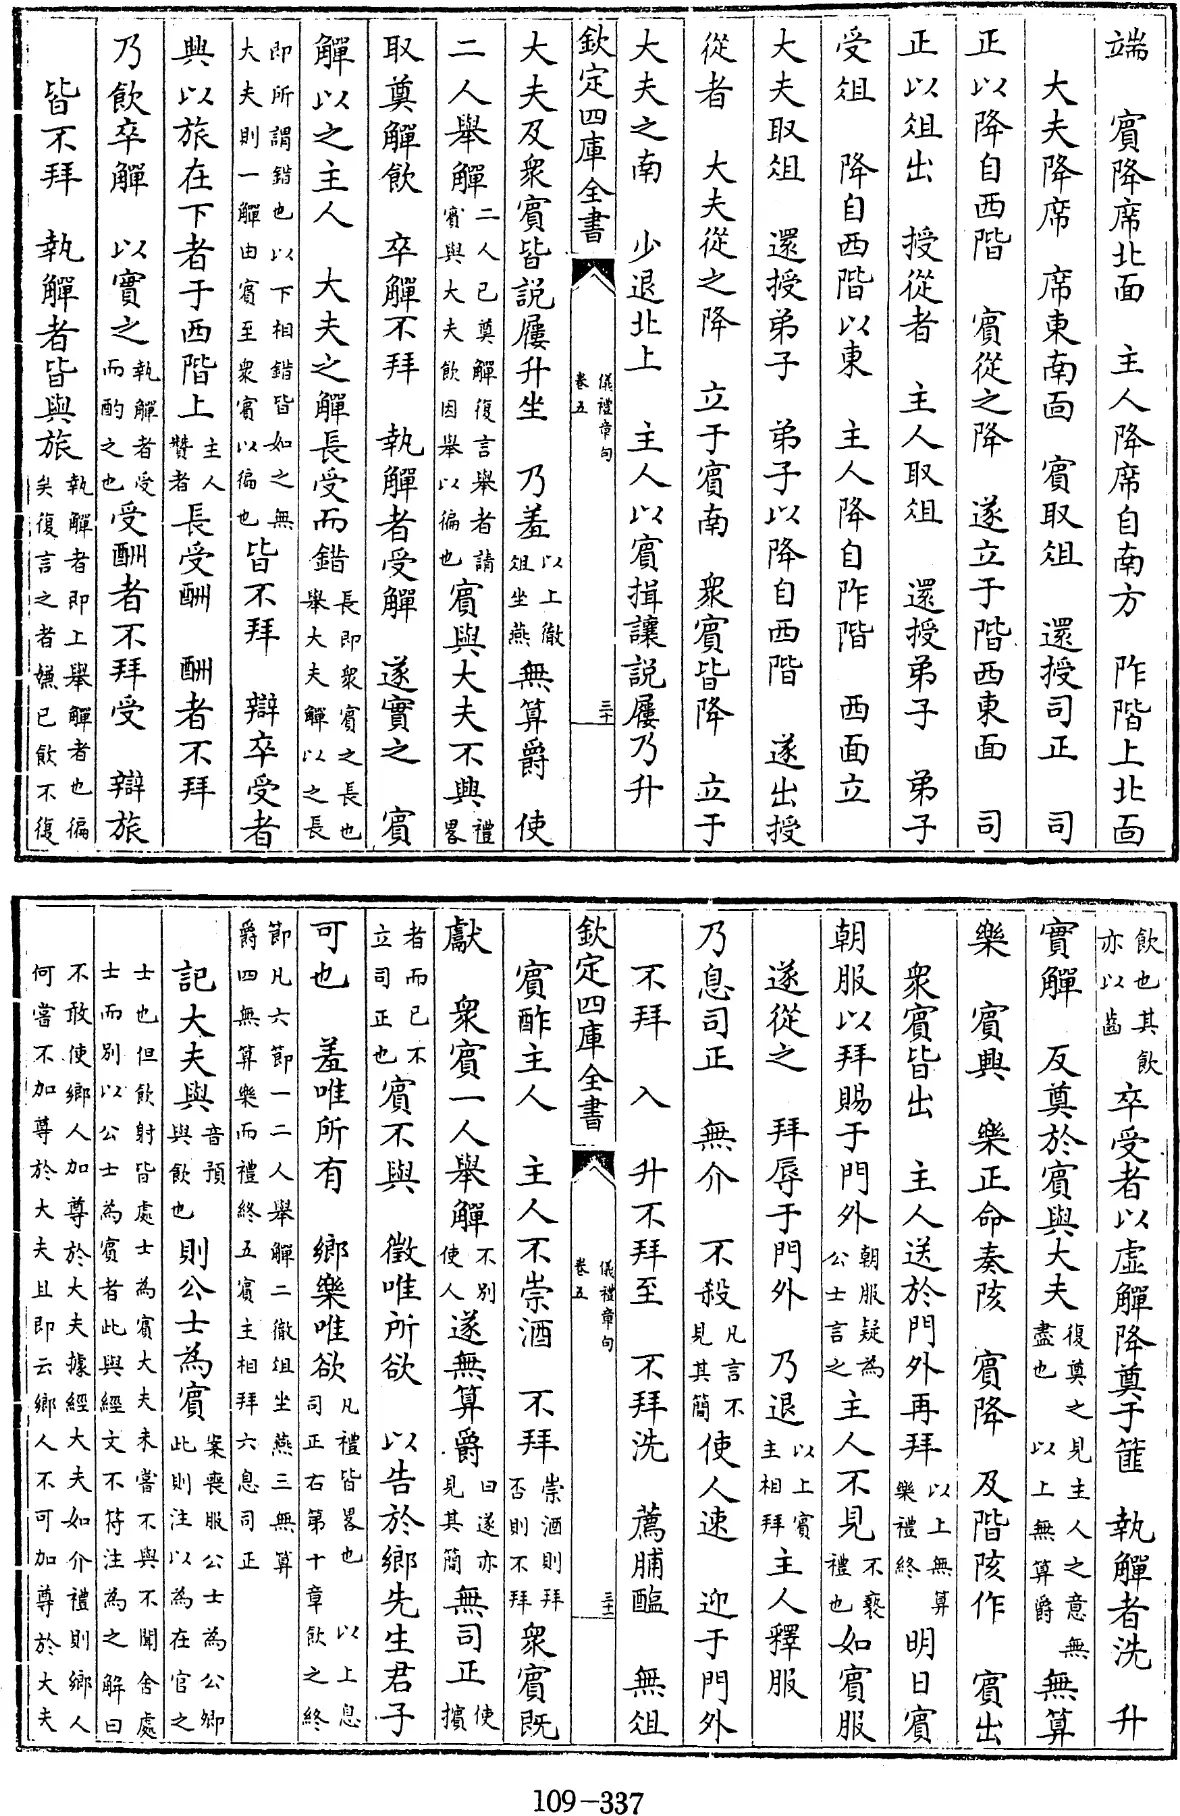 端　賓降席北面　主人降席自南方　阼階上北面
大夫降席　席東南面　賓取俎　還授司正　司
正以降自西階　賓從之降　遂立于階西東面　司
正以俎出　授從者　主人取俎　還授弟子　弟子
受俎　降自西階以東　主人降自阼階　西面立
大夫取俎　還授弟子　弟子以降自西階　遂出授
從者　大夫從之降　立于賓南　衆賓皆降　立于
大夫之南　少退北上　主人以賓揖讓説屨乃升
欽定四庫全書　儀禮章句　卷五　三十
大夫及衆賓皆説屨升坐　乃羞以上徹俎坐燕無算爵　使
二人舉觶二人已奠觶復言舉者請賓與大夫飲因舉以徧也賓與大夫不興禮畧
取奠觶飲　卒觶不拜　執觶者受觶　遂實之　賓
觶以之主人　大夫之觶長受而錯長即衆賓之長也舉大夫觶以之長
即所謂錯也以下相錯皆如之無大夫則一觶由賓至衆賓以徧也皆不拜　辯卒受者
興以旅在下者于西階上主人贊者長受酬　酬者不拜
乃飲卒觶　以實之執觶者受而酌之也受酬者不拜受　辯旅
皆不拜　執觶者皆與旅執觶者即上舉觶者也徧矣復言之者嫌已飲不復
飲也其飲亦以齒卒受者以虛觶降奠于篚　執觶者洗　升
實觶　反奠於賓與大夫復奠之見主人之意無盡也　以上無算爵無算
樂　賓興　樂正命奏陔　賓降　及階陔作　賓出
衆賓皆出　主人送於門外再拜以上無算樂禮終　明日賓
朝服以拜賜于門外朝服疑為公士言之主人不見不褻禮也如賓服
遂從之　拜辱于門外　乃退以上賓主相拜主人釋服
乃息司正　無介　不殺凡言不見其簡使人速　迎于門外
不拜　入　升不拜至　不拜洗　薦脯醢　無俎
欽定四庫全書　儀禮章句　卷五　三十一
賓酢主人　主人不崇酒　不拜崇酒則拜否則不拜衆賓既
獻　衆賓一人舉觶不别使人遂無算爵曰遂亦見其簡無司正使擯
者而已不立司正也賓不與　徵唯所欲　以告於鄉先生君子
可也　羞唯所有　鄉樂唯欲凡禮皆畧也　以上息司正右第十章　飲之終
節凡六節一二人舉觶二徹俎坐燕三無算爵四無算樂而禮終五賓主相拜六息司正
記大夫與音預與飲也則公士為賓案喪服公士為公卿此則注以為在官之
士也但飲射皆處士為賓大夫未嘗不與不聞舍處士而别以公士為賓者此與經文不符注為之解曰
不敢使鄉人加尊於大夫據經大夫如介禮則鄉人何嘗不加尊於大夫且即云鄉人不可加尊於大夫
109-337